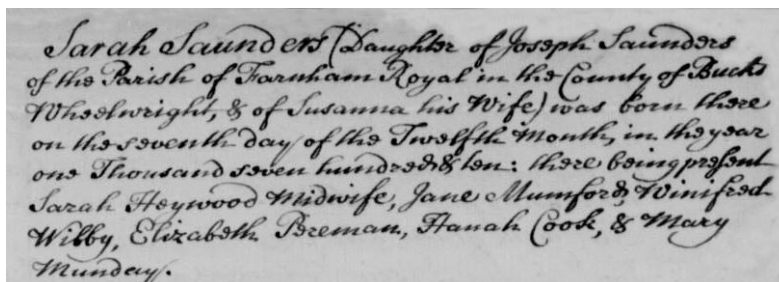 Sarah Saunders (Daughter of Joseph Saunders
of the Parish of Farnham Royal in the County of Bucks
Wheelwright, & of Susanna his Wife) was born there
on the seventh day of the Twelfth Month, in the year
one Thousand seven hundred & ten: there being present
Sarah Heywood Midwife, Jane Mumford, Winifred
Wilby, Elizabeth Pereman, Hanah Cook, & Mary
Munday.